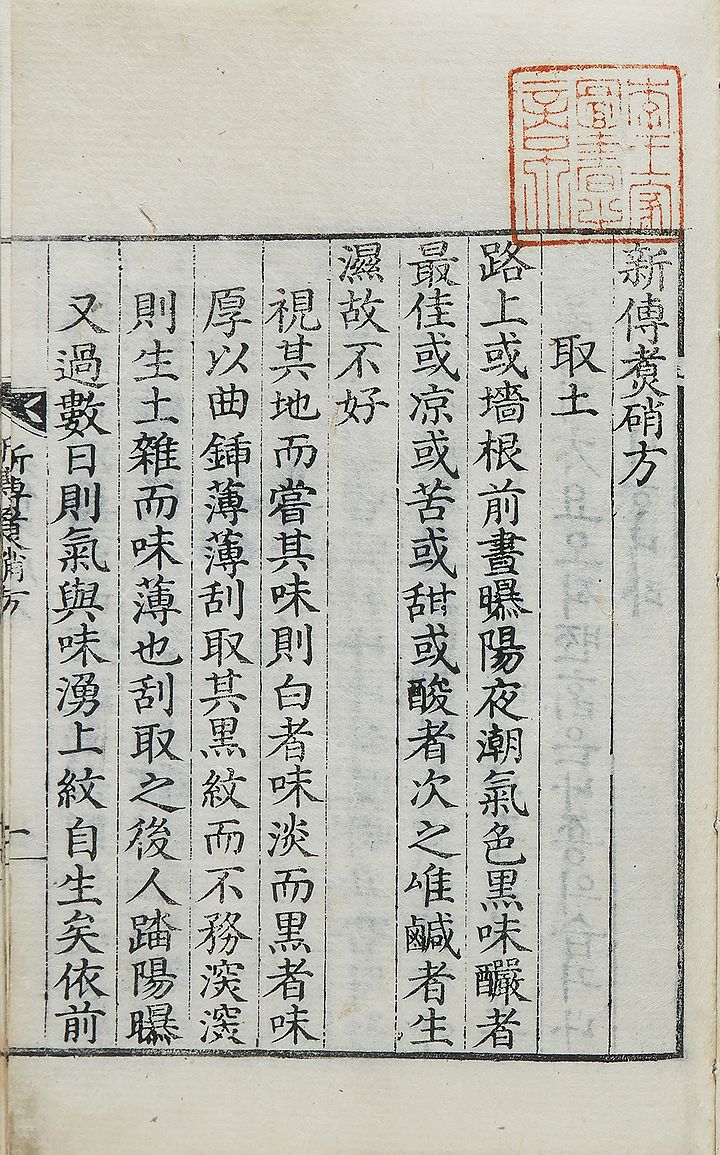 新傳煮硝方
取土
路上或墻根前晝曝陽夜潮氣色黑味釅者
最佳或凉或苦或甜或酸者次之唯鹹者生
濕故不好
視其地而嘗其味則白者味淡而黑者味
厚以曲鍤薄薄刮取其黑紋而不務深深
則生土雜而味薄也刮取之後人踏陽曝
又過數日則氣與味湧上紋自生矣依前
新傳煮硝方
一